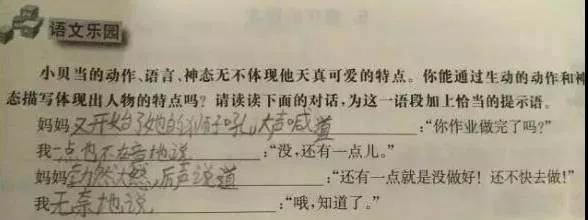 语文乐园
小贝当的动作、语言、神态无不体现他天真可爱的特点。你能通过生动的动作和神
态描写体现出人物的特点吗？请读读下面的对话，为这一语段加上恰当的提示语。
妈妈又开始了她的狮子吼，大声喊道：“你作业做完了吗？”
我一点也不在意地说：“没，还有一点儿。”
妈妈勃然大怒，厉声说道：“还有一点就是没做好！还不快去做！”
我无奈地说：“哦，知道了。”